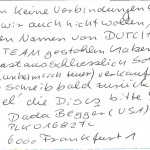 keine Verbindungen
wir auch nicht wollen,
den Namen von DUTCH
TEAM gestohlen haben
fast ausschliesslich
(unheimlich teuer) verkauf
Schreib bald zurück
die Discs bitte
Dada Begger (USA)
PLK 016827C
6000 Frankfurt 1